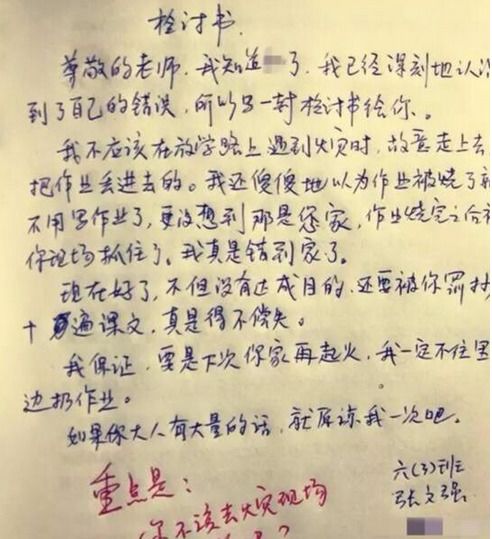 检讨书
尊敬的老师，我知道 了，我已经深刻地认
到了自己的错误，所以写一封检讨书给你。
我不应该在放学路上遇到火灾时，故意走上去
把作业丢进去的。我还傻傻地以为作业被烧了就
不用写作业了，更没想到那是您家，作业烧完之后被
你现场抓住了。我真是错到家了。
现在好了，不但没有达成目的，还要被你罚抄
十遍课文，真是得不偿失。
我保证，要是下次你家再起火，我一定不往里
边扔作业。
如果你大人有大量的话，就原谅我一次吧。
六(3)班
张文强
重点是：
你不该去火灾现场